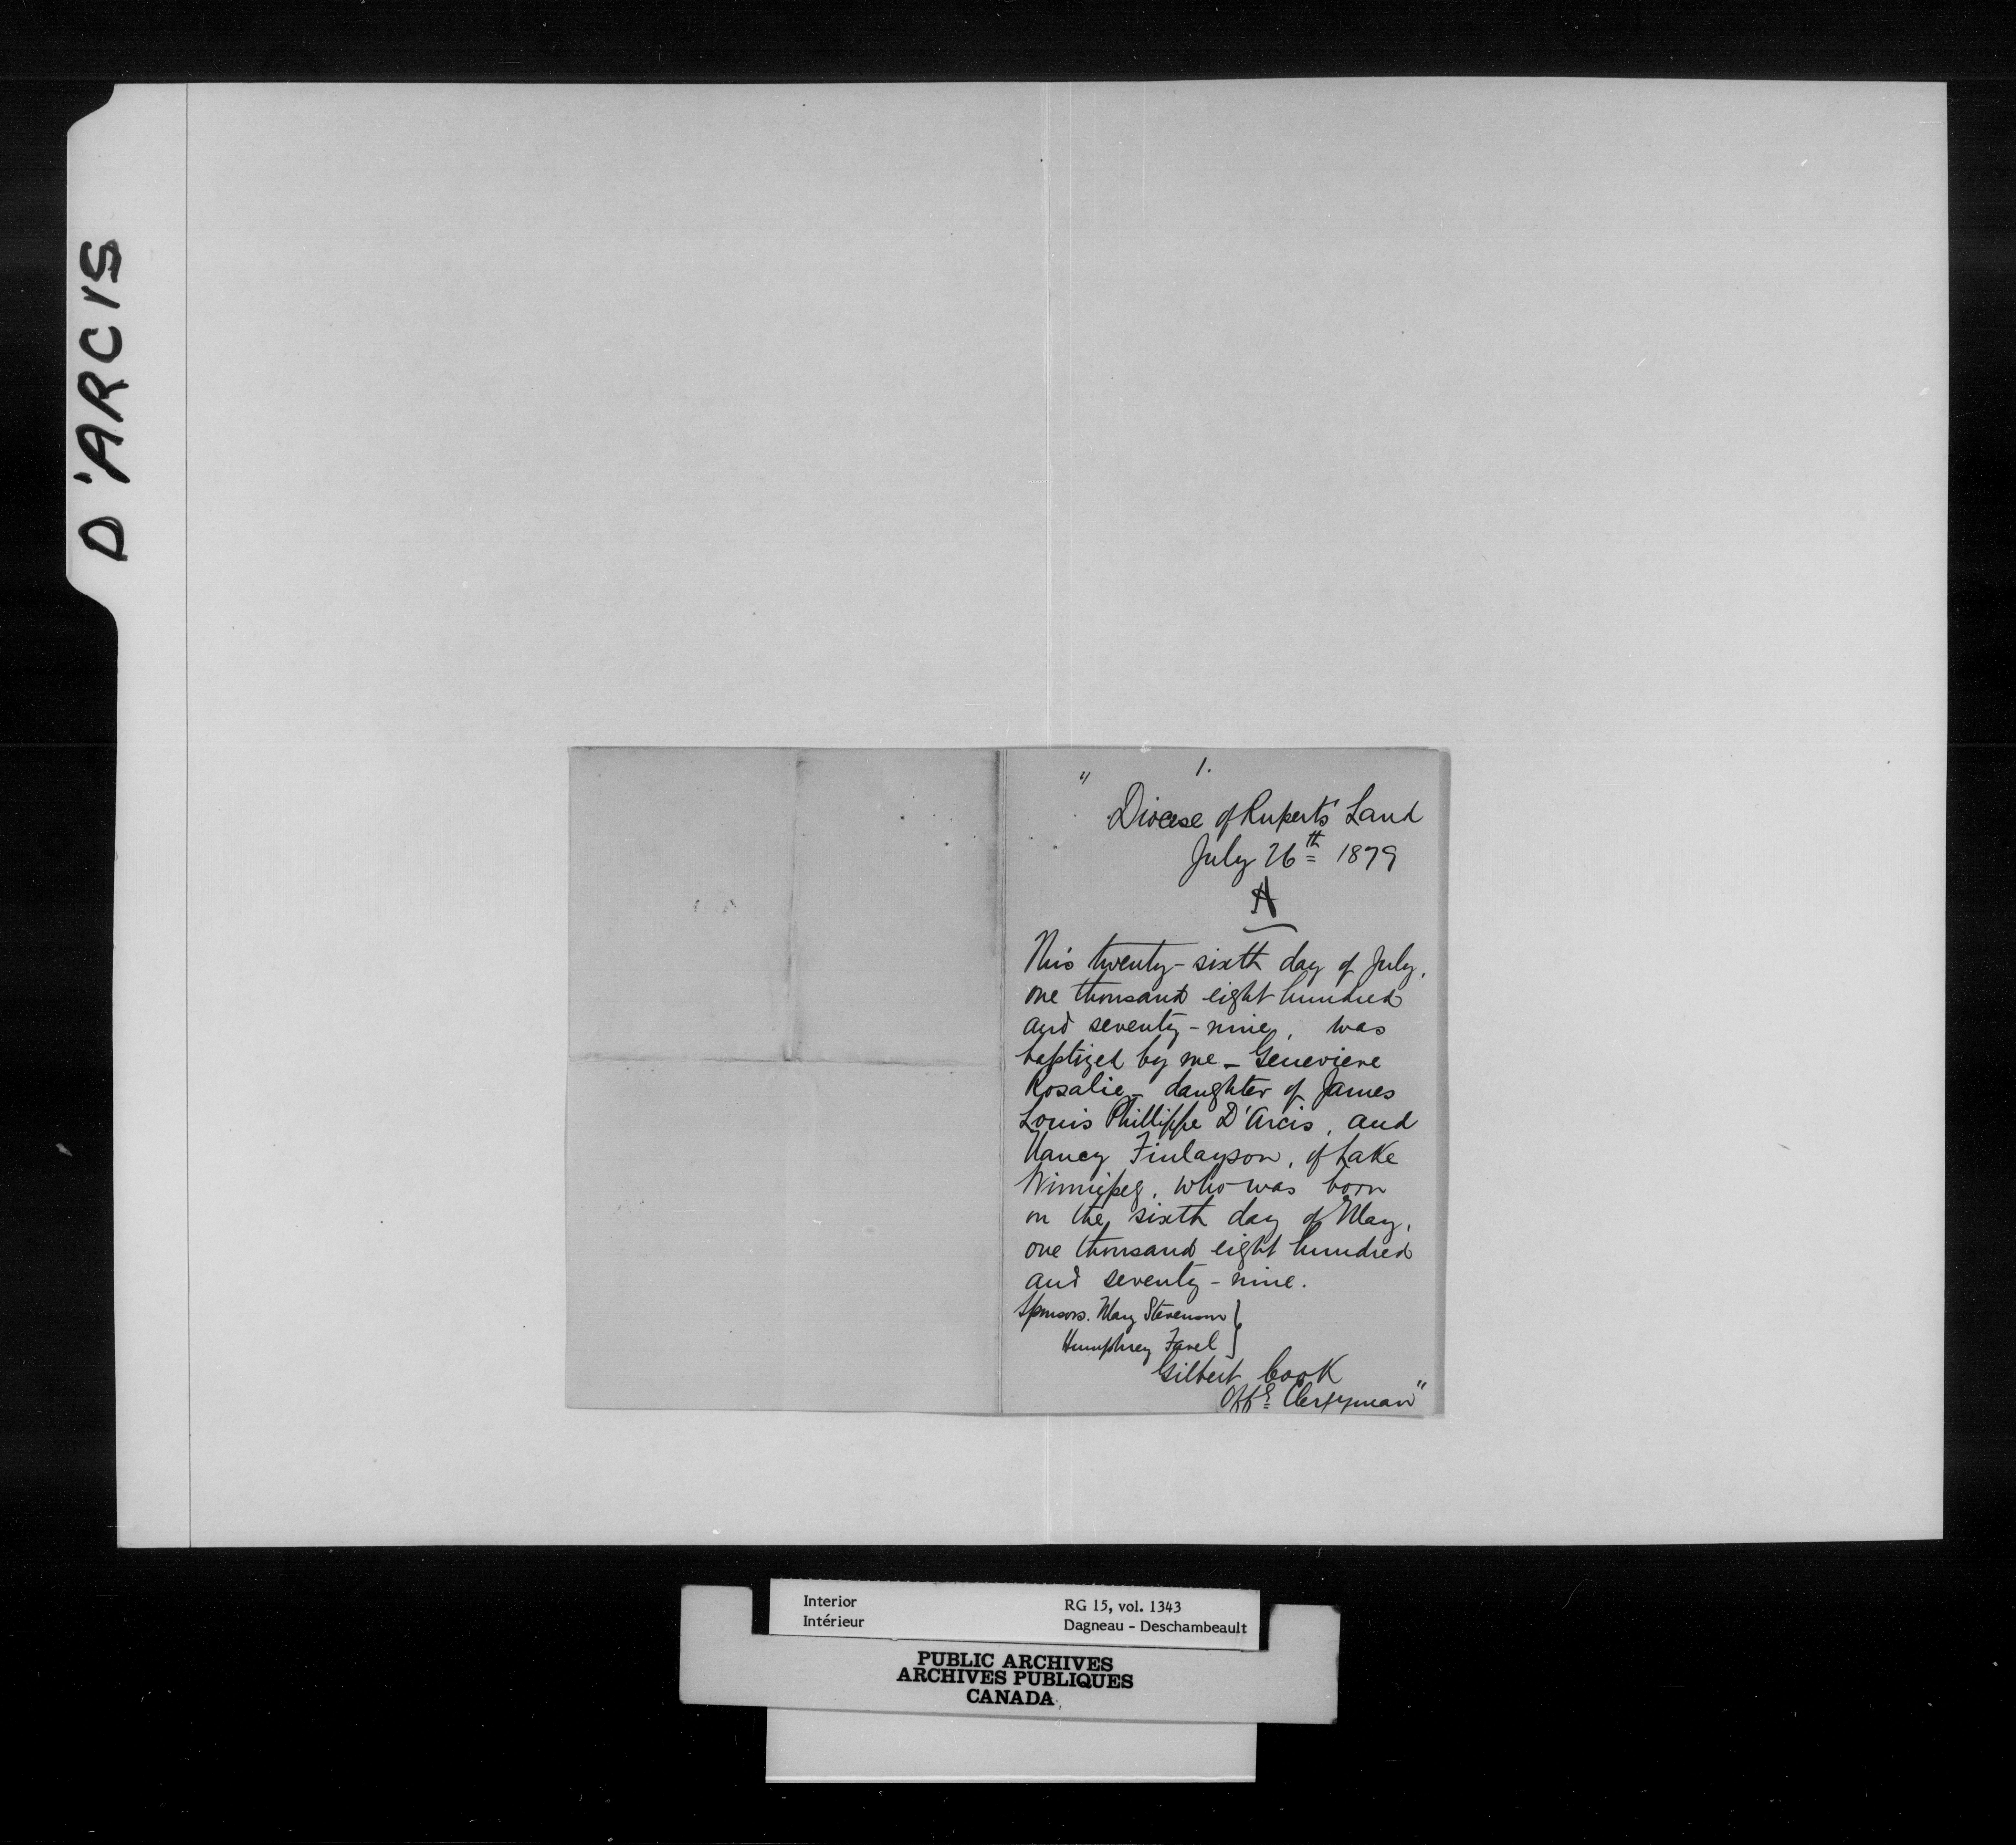 D'ARCIS
" 1.
Diocese of Rupert's Land
July 26th 1879
A
This twenty-sixth day of July,
one thousand eight hundred
and seventy-nine, was
baptized by me - Genevieve
Rosalie - daughter of James
Louis Phillippe D'Arcis, and
Nancy Finlayson, of Lake
Winnipeg, who was born
on the sixth day of May,
one thousand eight hundred
and seventy-nine.
Sponsors. Mary Stevenson }
Humphrey Favel }
Gilbert Cook
Offg Clergyman"
Interior
Intérieur
RG 15, vol. 1343
Dagneau - Deschambeault
PUBLIC ARCHIVES
ARCHIVES PUBLIQUES
CANADA